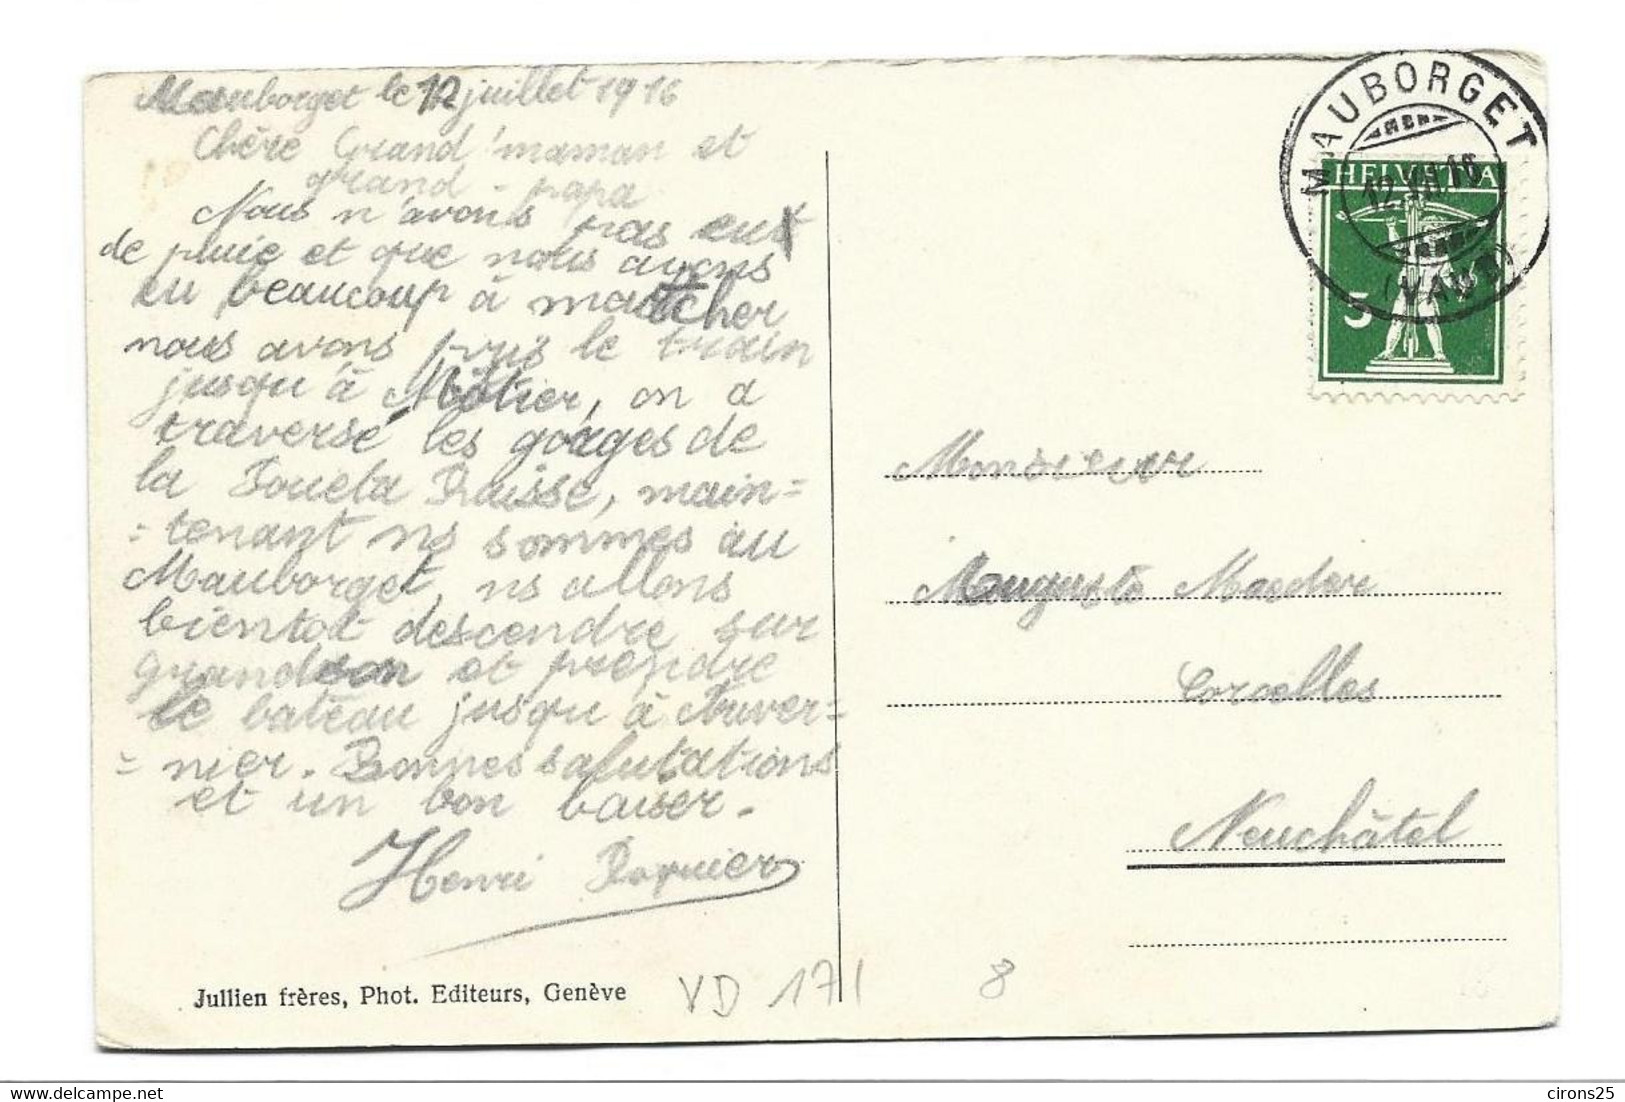 Mauborget le 12 juillet 1916
Chère Grand'maman et
grand-papa
Nous n'avons pas eu
de pluie et que nous avons
eu beaucoup à marcher
nous avons pris le train
jusqu'à Môtier, on a
traversé les gorges de
la Poueta Raisse, main=
=tenant ns sommes au
Mauborget, ns allons
bientot descendre sur
Grandson et prendre
le bateau jusqu'à Auver=
=nier. Bonnes salutations
et un bon baiser.
Henri
Jullien frères, Phot. Editeurs, Genève
VD 171
8
MAUBORGET
12.VII.16
(VAUD)
HELVETIA
5
Monsieur
Auguste Maeder
Corcelles
Neuchâtel
cirons25